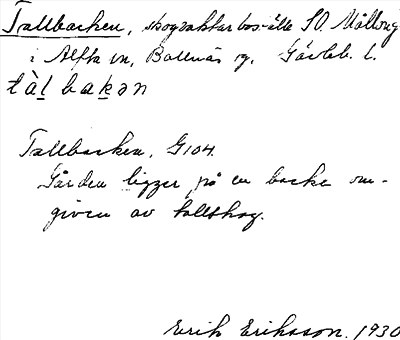 Tallbacken, skogvaktarboställe SO. Mållång
i Alfta sn, Bollnäs rg. Gävleb. l.
tàl bakən
Tallbacken, G104.
Gården ligger på en backe om-
given av tallskog.
Erik Eriksson, 1930